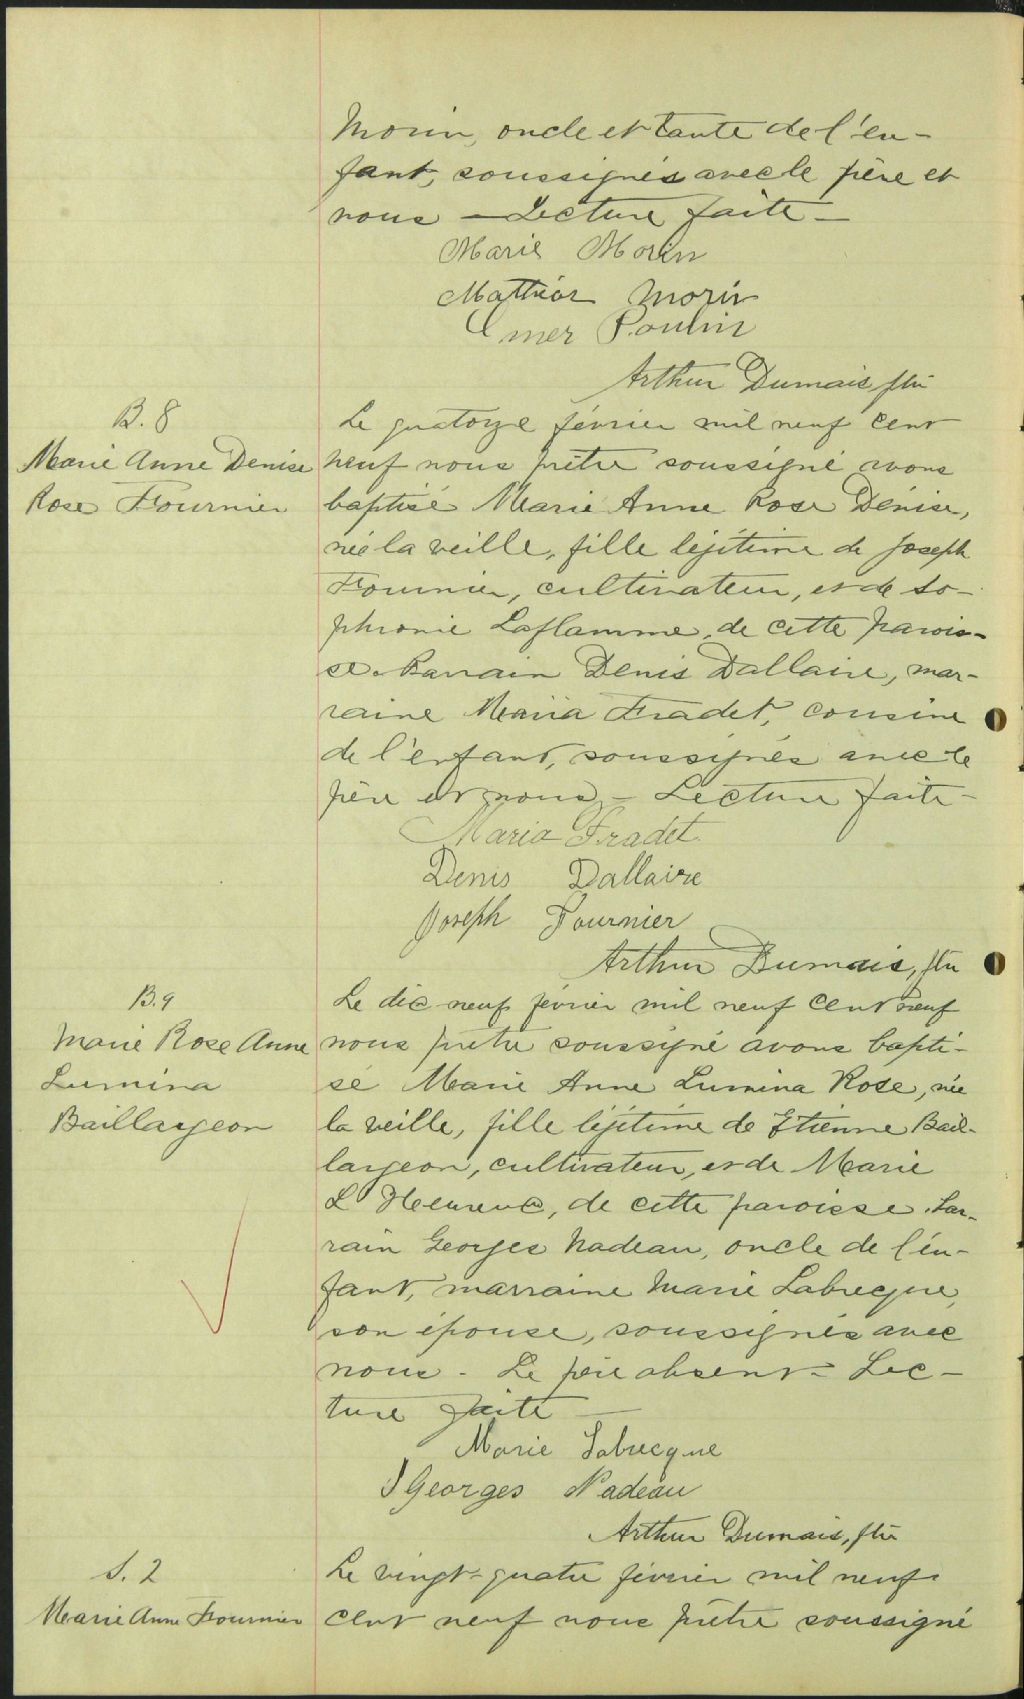 Morin, oncle et tante de l'en-
fant, soussignés avec le père et
nous — Lecture faite —
Marie Morin
Mathias Morin
Omer Poulin
Arthur Dumais, ptre
B. 8
Marie Anne Denise
Rose Fournier
Le quatorze février mil neuf cent
neuf nous prêtre soussigné avons
baptisé Marie Anne Rose Denise,
née la veille, fille légitime de Joseph
Fournier, cultivateur, et de So-
phronie Laflamme, de cette parois-
se. Parrain Denis Dallaire, mar-
raine Maria Fradet, cousine
de l'enfant, soussignés avec le
père et nous — Lecture faite —
Maria Fradet
Denis Dallaire
Joseph Fournier
Arthur Dumais, ptre
B. 9
Marie Rose Anne
Lumina
Baillargeon
Le dix neuf février mil neuf cent neuf
nous prêtre soussigné avons bapti-
sé Marie Anne Lumina Rose, née
la veille, fille légitime de Etienne Bail-
largeon, cultivateur, et de Marie
L'Heureux, de cette paroisse. Par-
rain Georges Nadeau, oncle de l'en-
fant, marraine Marie Labrecque,
son épouse, soussignés avec
nous - Le père absent - Lec-
ture faite —
Marie Labrecque
Georges Nadeau
Arthur Dumais, ptre
S. 2
Marie Anne Fournier
Le vingt-quatre février mil neuf
cent neuf nous prêtre soussigné